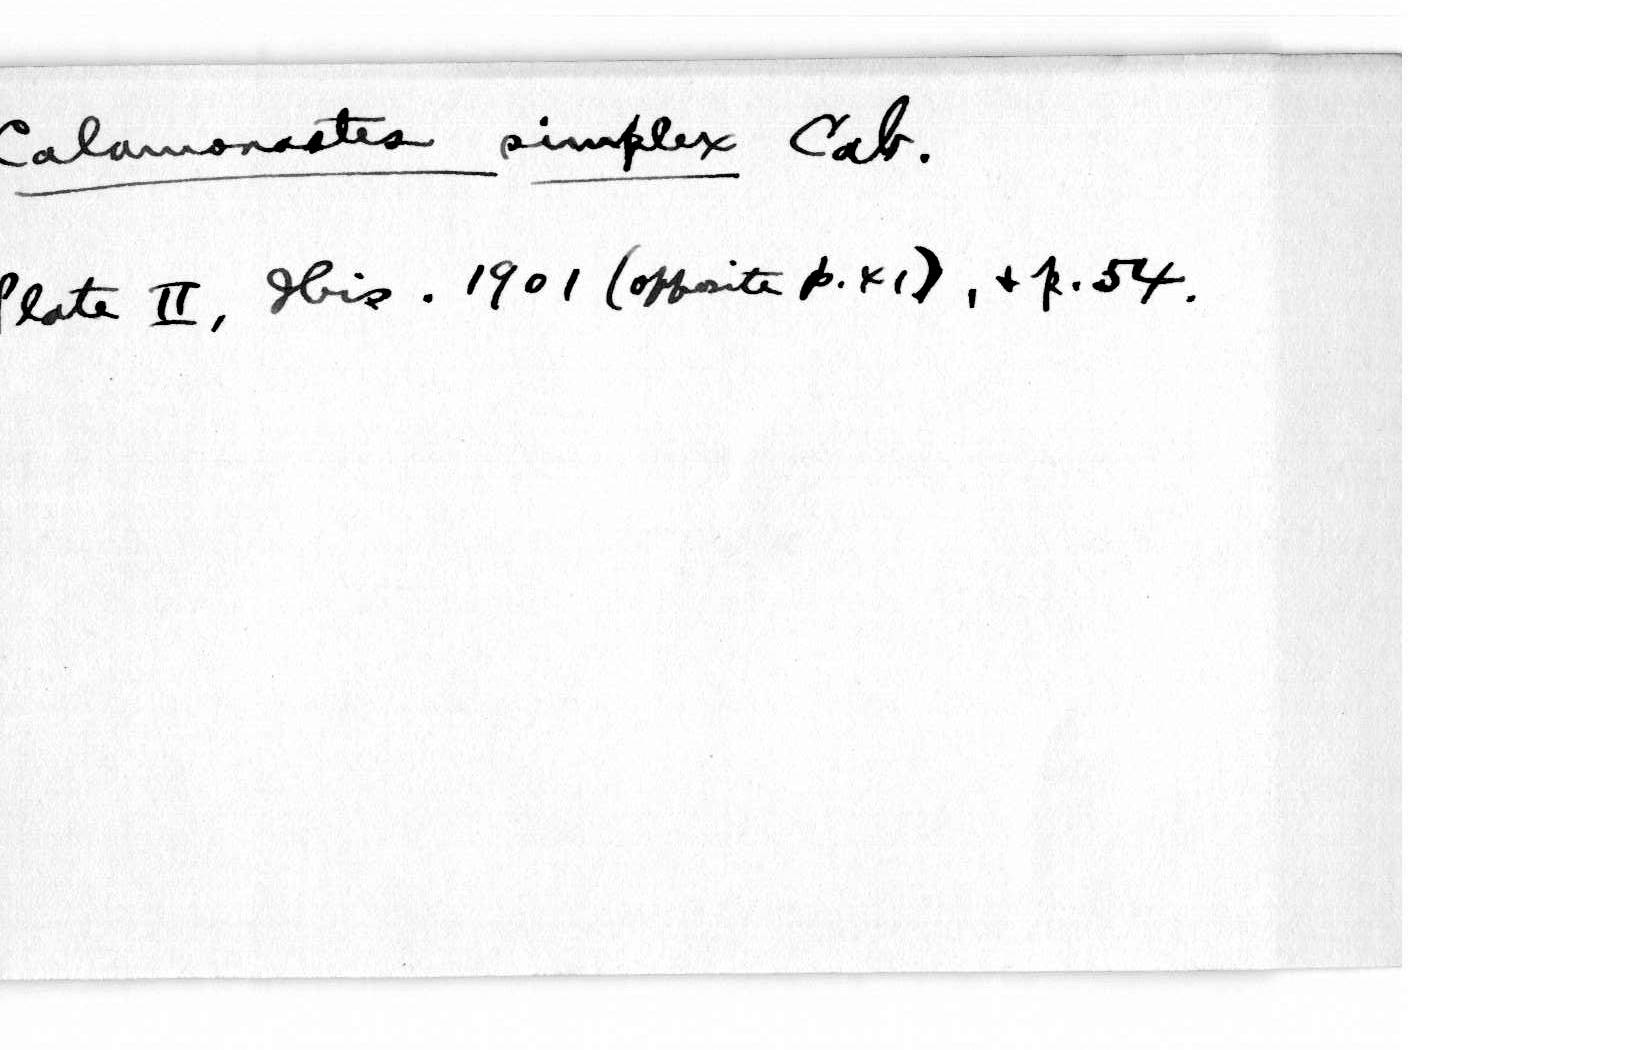 Calamonastes simplex Cab.
Plate II, Ibis. 1901 (opposite p. x1), + p. 54.